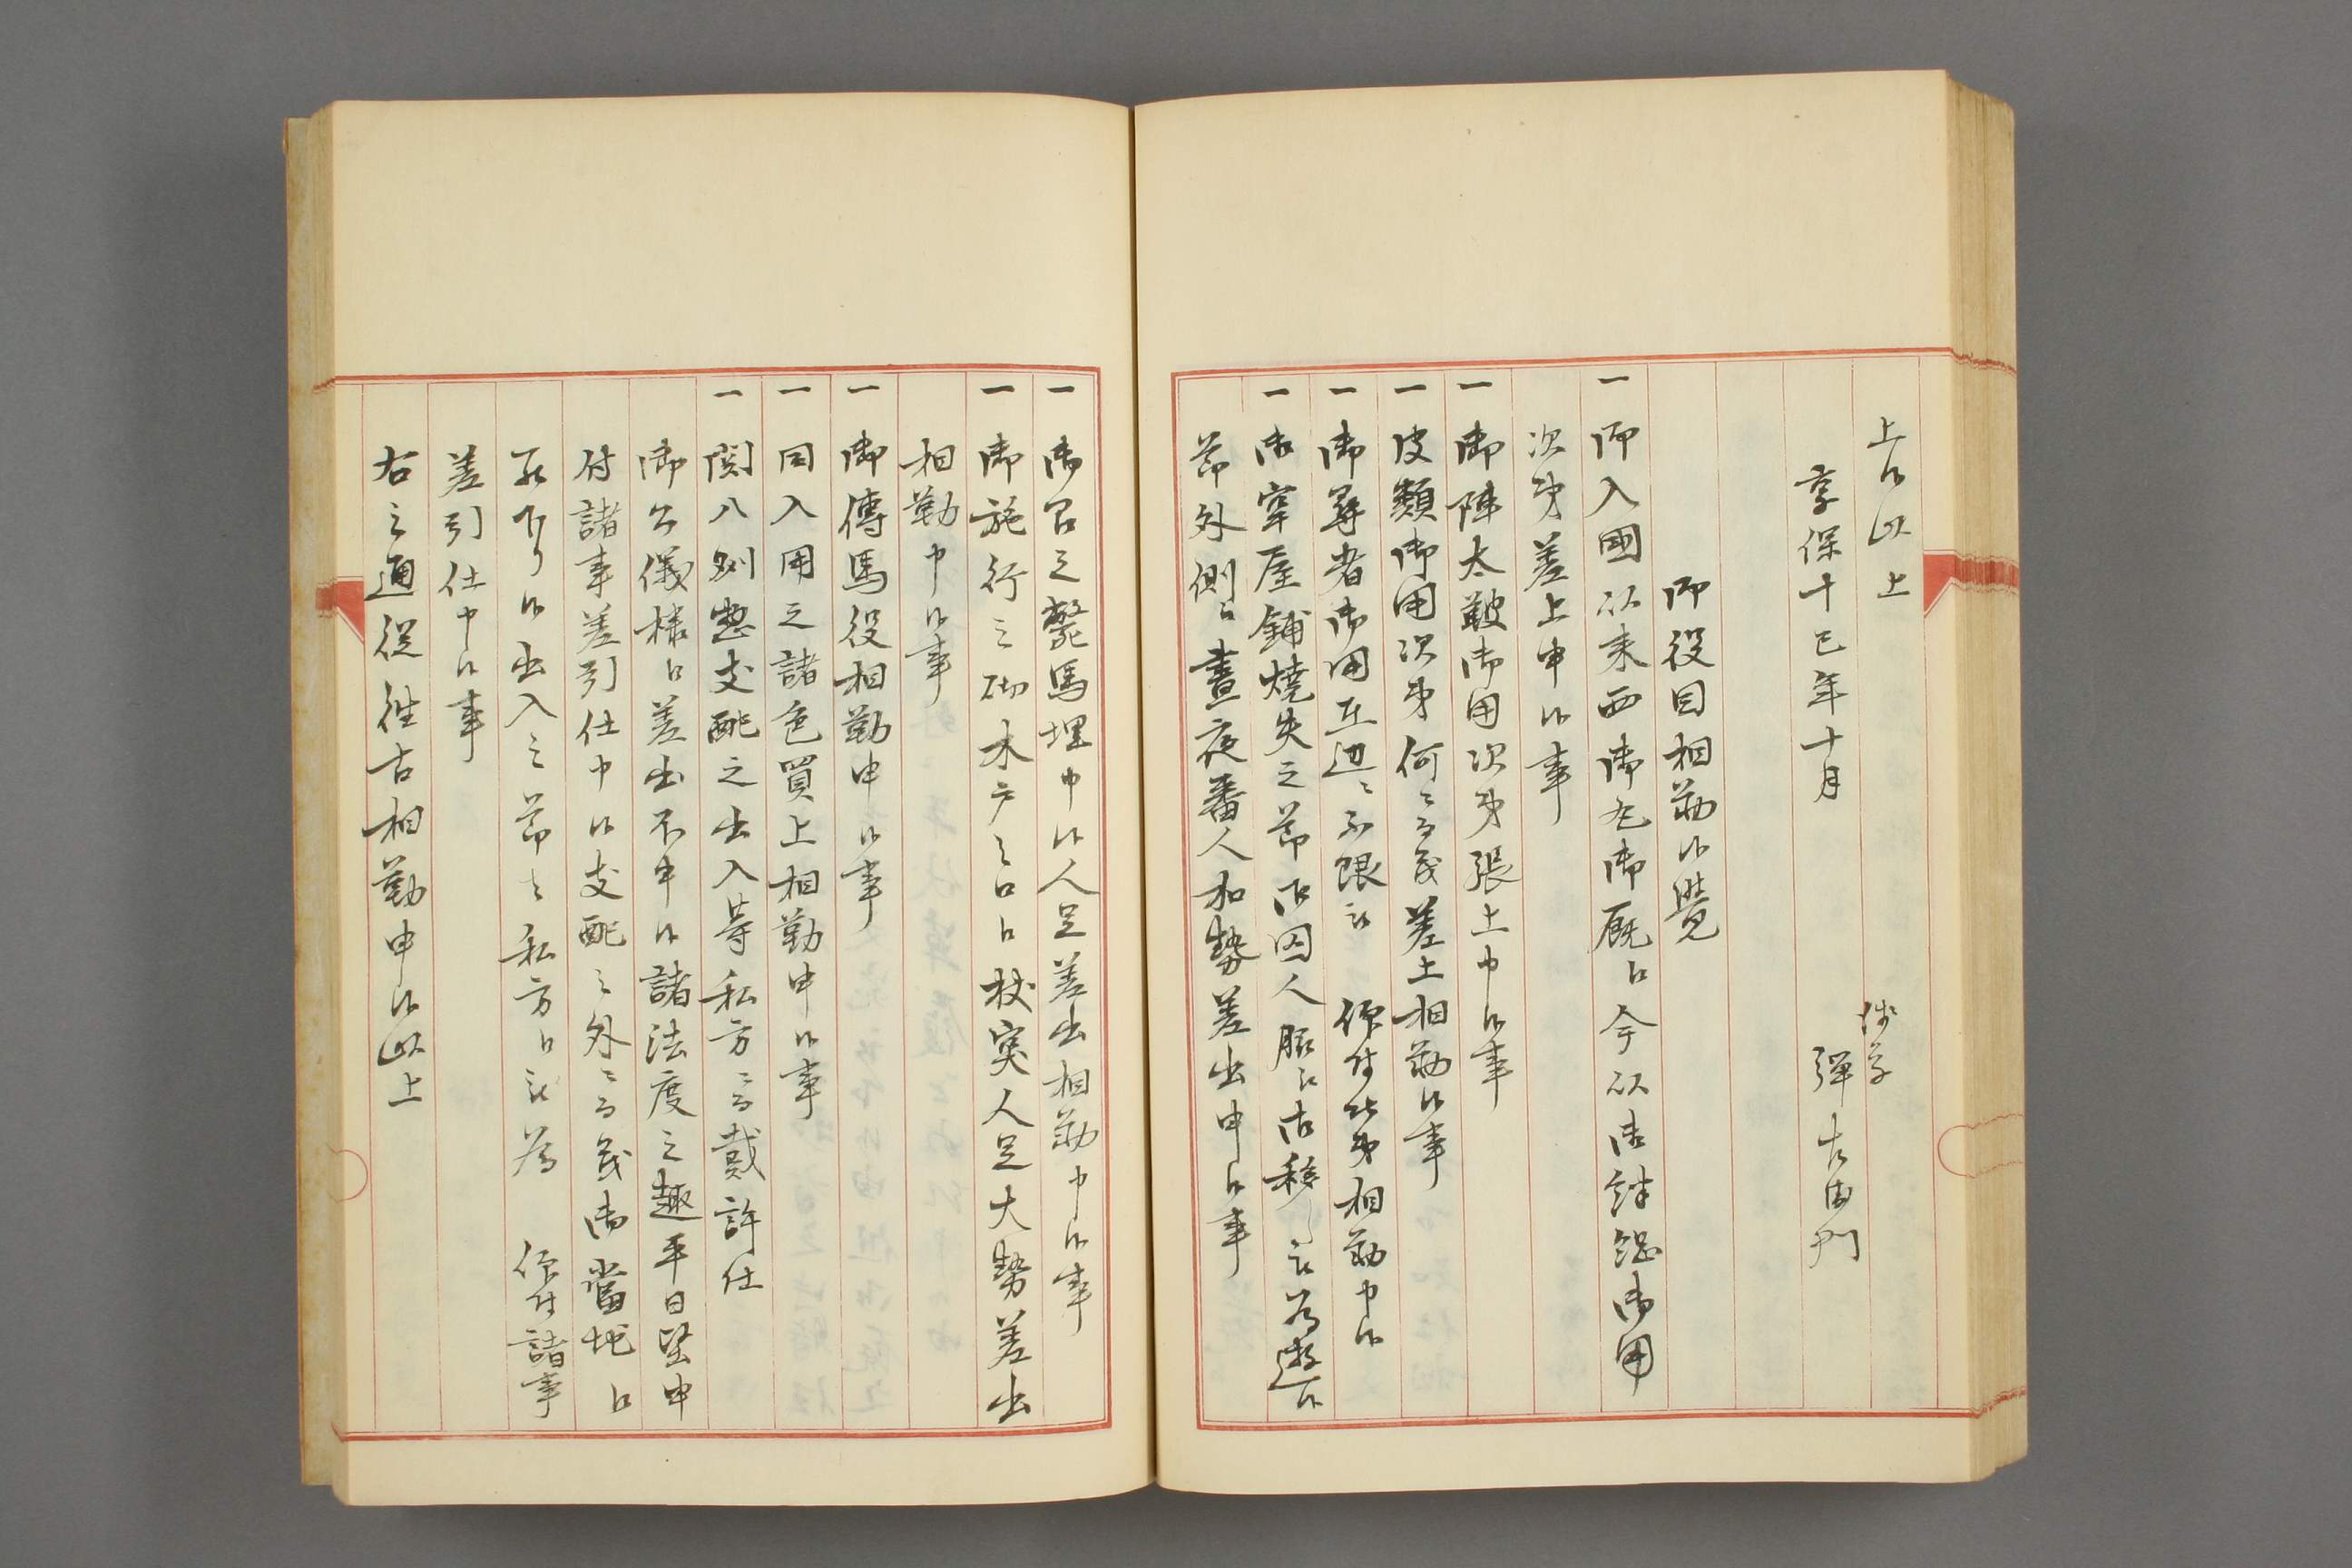 上候以上
享保十巳年十月
浅草
弾左衛門
御役目相勤候覚
一御入國以来西御丸御厩江今以御絆綱御用
次第差上申候事
一御陣太皷御用次第張上申候事
一皮類御用次第何ニ而茂差上相勤候事
一御尋者御用在邊ニ不限被 仰付次第相勤申候
一御牢屋鋪焼失之節御囚人脇江御移シ被為遊候
節外側江晝夜番人加勢差出申候事
一御召之斃馬埋申候人足差出相勤申候事
一御施行之砌木戸之口江杖突人足大勢差出
相勤申候事
一御傳馬役相勤申候事
一同入用之諸色買上相勤申候事
一関八州惣支配之出入等私方ニ而裁許仕
御公儀様江差出不申候諸法度之趣平日堅申
付諸事差引仕申候支配之外ニ而茂御當地江
罷下り候出入之節者私方江被為 仰付諸事
差引仕申候事
右之通従往古相勤申候以上